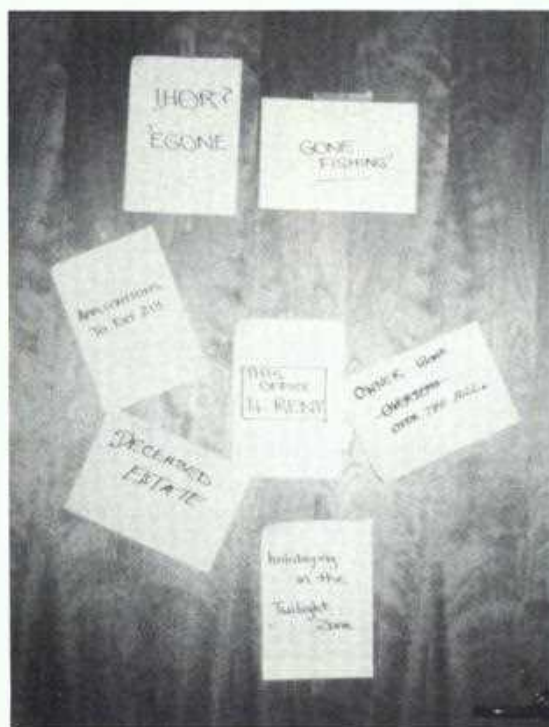 IHOR?
'EGONE
GONE
FISHING'
APPLICATIONS
TO EXT 211
THIS
OFFICE
4 RENT
OWNER
OVERSEAS
OVER THE HILL.
DECEASED
ESTATE
holidaying
in the
Twilight
Zone